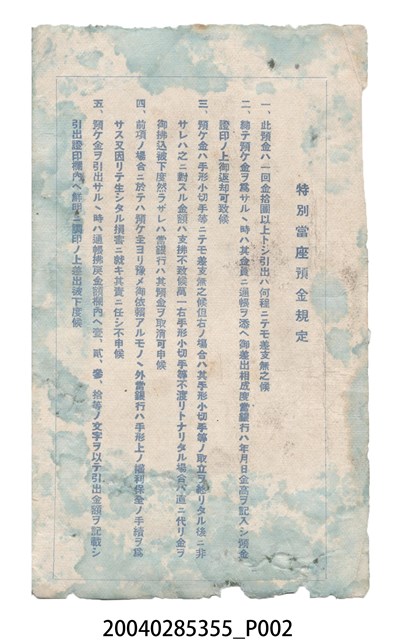 特別當座預金規定
一、此預金ハ一回金拾圓以上トシ引出ハ何程ニテモ差支無之候
二、總テ預ケ金ヲ爲サルヽ時ハ其金員ニ通帳ヲ添ヘ御差出相成度當銀行ハ年月日金高ヲ記入シ預金
證印ノ上御返却可致候
三、預ケ金ハ手形小切手等ニテモ差支無之候但右ノ場合ハ其手形小切手等ノ取立ヲ終リタル後ニ非
サレハ之ニ對スル金額ハ支拂不致候萬一右手形小切手等不渡リトナリタル場合ハ直ニ代リ金ヲ
御拂込被下度然ラサレハ當銀行ハ其預金ヲ取消可申候
四、前項ノ場合ニ於テハ預ケ主ヨリ豫メ御依頼アルモノヽ外當銀行ハ手形上ノ權利保全ノ手續ヲ爲
サス又因リテ生シタル損害ニ就キ其責ニ任シ不申候
五、預ケ金ヲ引出サルヽ時ハ通帳拂戻金額欄内ヘ壹、貳、參、拾等ノ文字ヲ以テ引出金額ヲ記載シ
引出證印欄内ヘ御調印ノ上差出被下度候
20040285355_P002